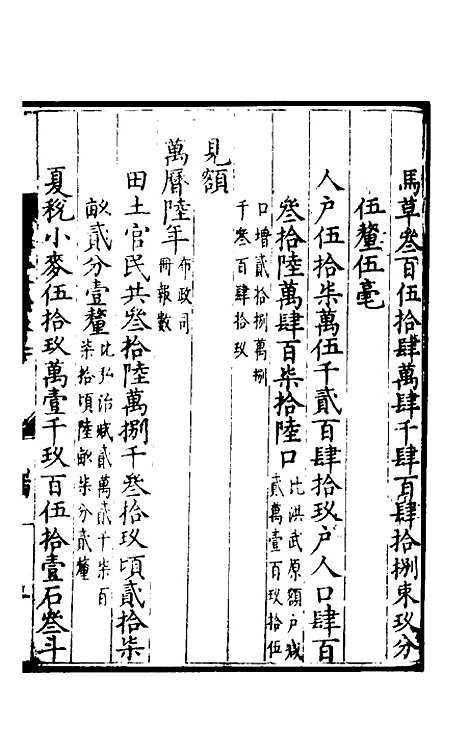 馬草叁百伍拾肆萬肆千肆百肆拾捌束玖分
伍釐伍毫
人户伍拾柒萬伍千貳百肆拾玖户人口肆百
叁拾陸萬肆百柒拾陸口比洪武原額户减
貳萬壹百玖拾伍
口增貳拾捌萬捌
千叁百肆拾玖
見額
萬曆陸年布政司
冊報數
田土官民共叁拾陸萬捌千叁拾玖頃貳拾柒
畝貳分壹釐比弘治减貳萬貳千柒百
柒拾頃陸畝柒分貳釐
夏稅小麥伍拾玖萬壹千玖百伍拾壹石叁斗